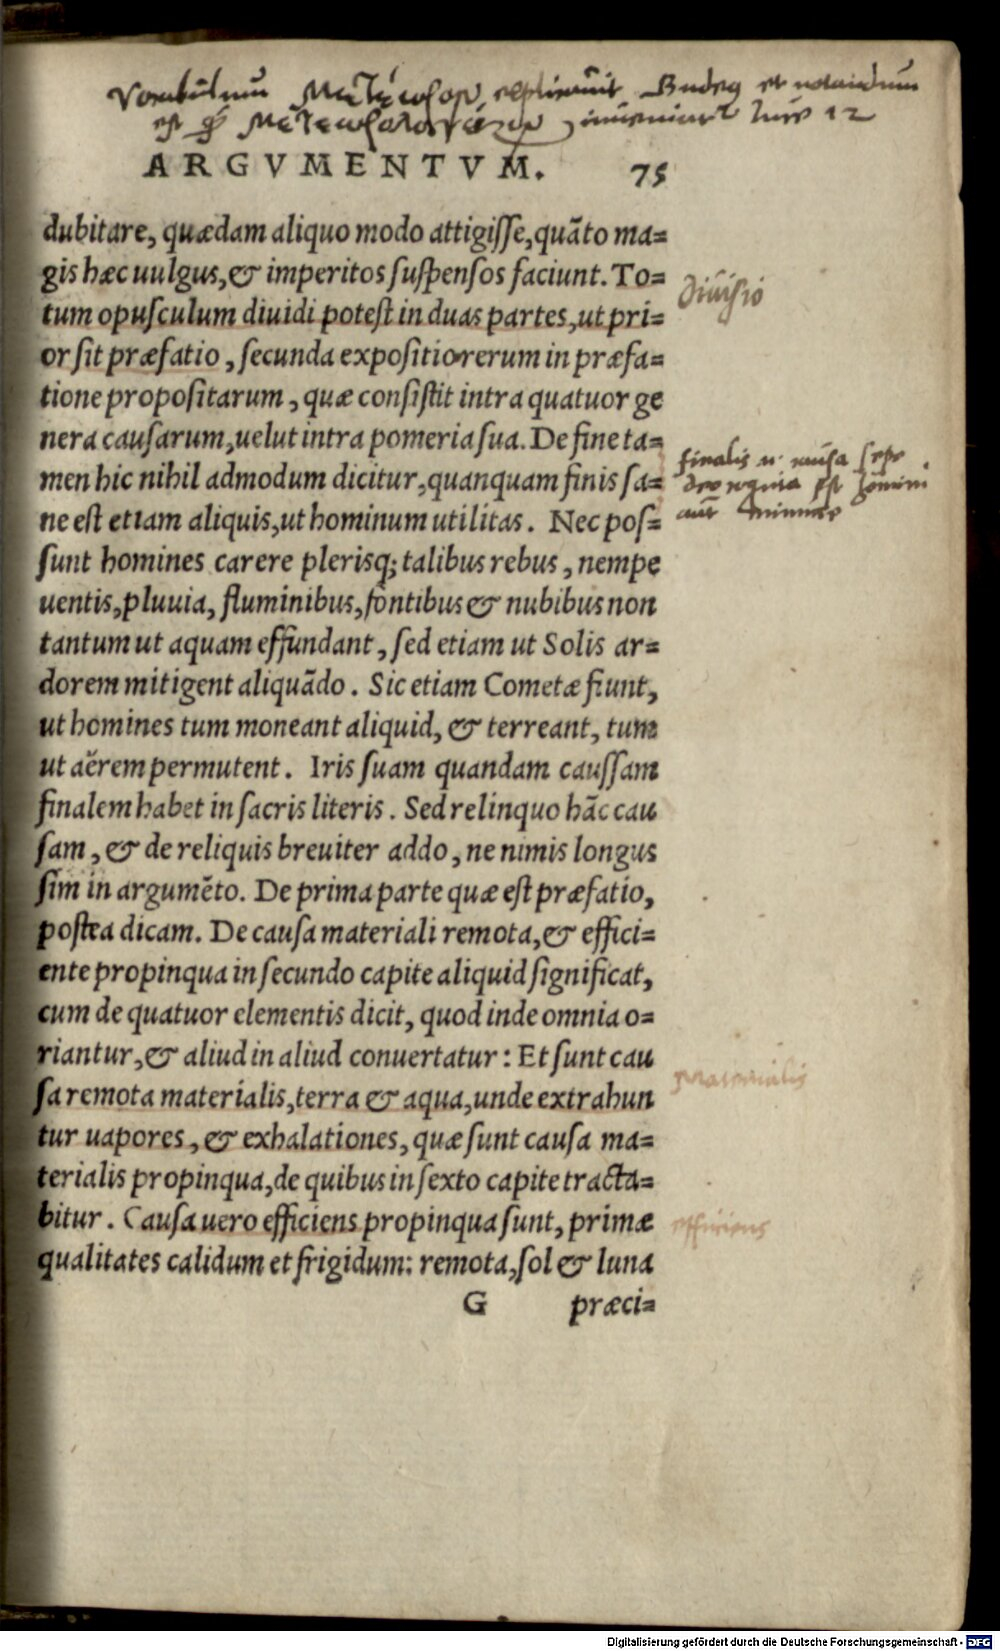 Vocabulum Μετέωρον explicavit Budeus et notandum
est
ARGVMENTVM. 75
dubitare, quædam aliquo modo attigisse, quãto ma=
gis hæc uulgus, & imperitos suspensos faciunt. To=
tum opusculum diuidi potest in duas partes, ut pri=
or sit præfatio, secunda expositio rerum in præfa=
tione propositarum, quæ consistit intra quatuor ge
nera causarum, uelut intra pomeria sua. De fine ta=
men hic nihil admodum dicitur, quanquam finis sa=
ne est etiam aliquis, ut hominum utilitas. Nec pos=
sunt homines carere plerisq; talibus rebus, nempe
uentis, pluuia, fluminibus, fontibus & nubibus non
tantum ut aquam effundant, sed etiam ut Solis ar=
dorem mitigent aliquãdo. Sic etiam Cometæ fiunt,
ut homines tum moneant aliquid, & terreant, tum
ut aërem permutent. Iris suam quandam caussam
finalem habet in sacris literis. Sed relinquo hãc cau
sam, & de reliquis breuiter addo, ne nimis longus
sim in argumẽto. De prima parte quæ est præfatio,
postea dicam. De causa materiali remota, & effici=
ente propinqua in secundo capite aliquid significat,
cum de quatuor elementis dicit, quod inde omnia o=
riantur, & aliud in aliud conuertatur: Et sunt cau
sa remota materialis, terra & aqua, unde extrahun
tur uapores, & exhalationes, quæ sunt causa ma=
terialis propinqua, de quibus in sexto capite tracta=
bitur. Causa uero efficiens propinqua sunt, primæ
qualitates calidum et frigidum: remota, sol & luna
G præci=
Diuisio
finalis n. causa sepe
materialis
efficiens
Digitalisierung gefördert durch die Deutsche Forschungsgemeinschaft - DFG